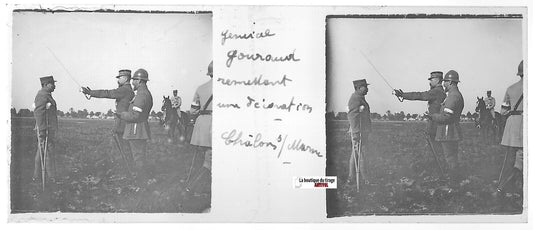 Général
Gouraud
remettant
une décoration
Châlons s/ Marne
La boutique du tirage